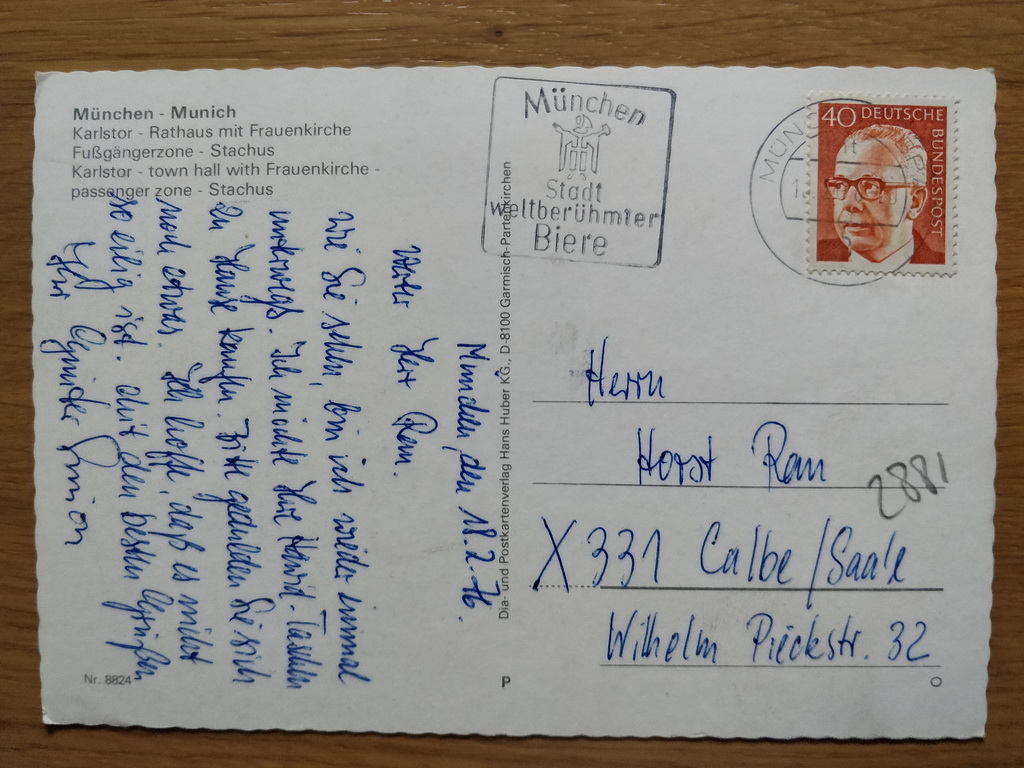 München - Munich
Karlstor - Rathaus mit Frauenkirche
Fußgängerzone - Stachus
Karlstor - town hall with Frauenkirche -
passenger zone - Stachus
München, den 18.2.76.
Werter Herr Rau.
Wie Sie sehen, bin ich wieder einmal
unterwegs. Ich möchte Ihre
zu Hause kaufen. Bitte gedulden Sie sich
noch etwas. Ich hoffe, daß es nicht
so eilig ist. Mit den besten Grüßen
Ihr Günter
Nr. 8824
Dia- und Postkartenverlag Hans Huber KG., D-8100 Garmisch-Partenkirchen
P
München
Stadt
weltberühmter
Biere
MÜNC
40 DEUTSCHE
BUNDESPOST
Herrn
Horst Rau
X 331 Calbe/Saale
Wilhelm Pieckstr. 32
2881